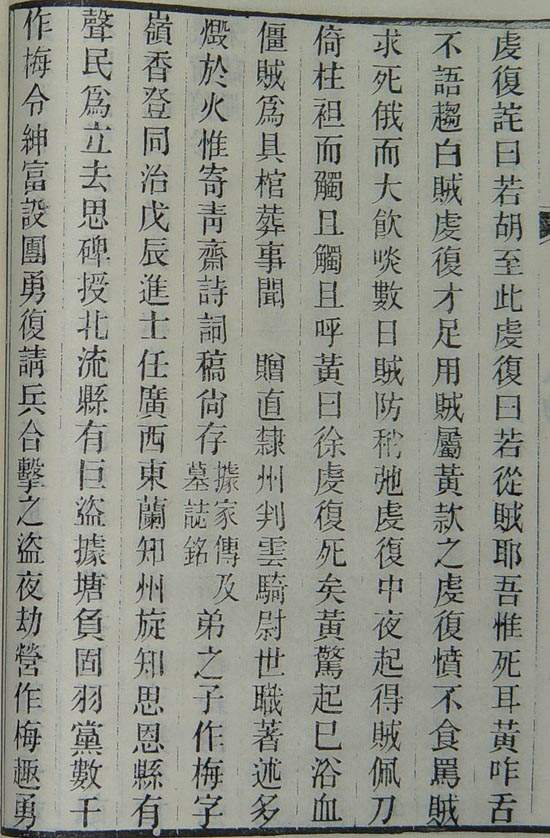 虔復詫曰若胡至此虔復曰若從賊耶吾惟死耳黃咋舌
不語趨白賊虔復才足用賊屬黃款之虔復憤不食罵賊
求死俄而大飮啖數日賊防稍弛虔復中夜起得賊佩刀
倚柱袒而觸且觸且呼黃曰徐虔復死矣黃驚起已浴血
僵賊爲具棺葬事聞 贈直隸州判雲騎尉世職著述多
燬於火惟寄靑齋詩詞稿尙存據家傳及墓誌銘 弟之子作梅字
嶺香登同治戊辰進士任廣西東蘭知州旋知思恩縣有
聲民爲立去思碑授北流縣有巨盜據塘負固羽黨數千
作梅令紳富設團勇復請兵合擊之盜夜劫營作梅趣勇